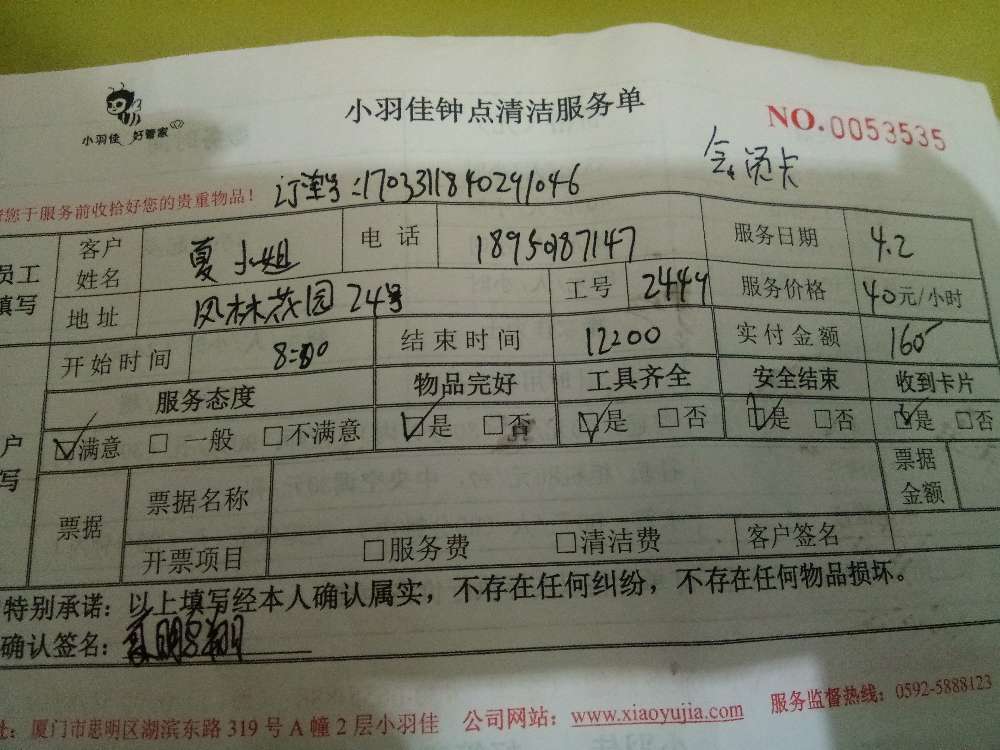 小羽佳钟点清洁服务单
NO.0053535
小羽佳 好管家
会员卡
订单号:1703311840291046
您于服务前收拾好您的贵重物品!
员工
填写
客户
姓名
夏小姐
电话
18950187147
服务日期
4.2
地址
风林花园24号
工号
2449
服务价格
40元/小时
开始时间
8:00
结束时间
12:00
实付金额
160
服务态度
物品完好
工具齐全
安全结束
收到卡片
户
写
满意 □一般 □不满意
是 □否
是 □否
是 □否
是 □否
票据
票据名称
票据
金额
开票项目
□服务费 □清洁费
客户签名
特别承诺:以上填写经本人确认属实,不存在任何纠纷,不存在任何物品损坏。
确认签名:
址:厦门市思明区湖滨东路319号A幢2层小羽佳 公司网站:www.xiaoyujia.com 服务监督热线:0592-5888123